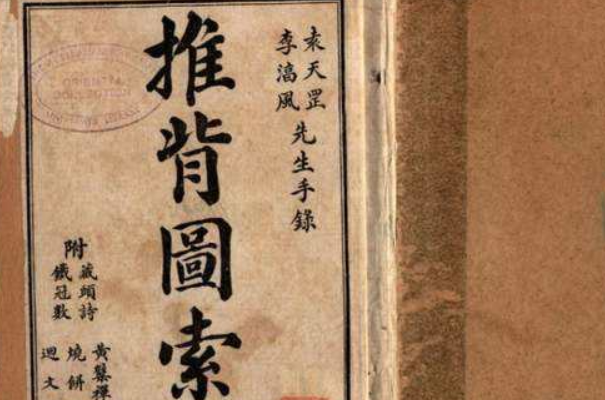 袁天罡
李湻風
先生手錄
推背圖索
附
藏頭詩
鐵冠數
黃蘗禪
燒餅
迴文
COLLECTION